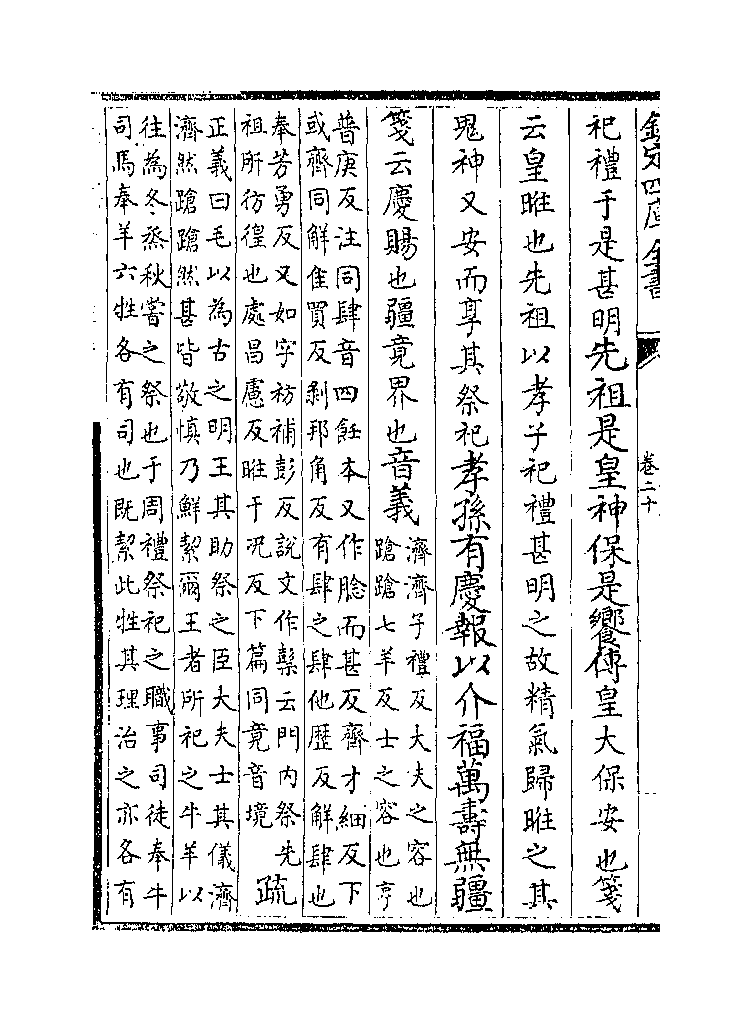 欽定四庫全書
卷二十
祀禮于是甚明先祖是皇神保是饗傳皇大保安也箋
云皇暀也先祖以孝子祀禮甚明之故精氣歸暀之其
鬼神又安而享其祭祀孝孫有慶報以介福萬壽無疆
箋云慶賜也疆竟界也音義
濟濟子禮反大夫之容也
蹌蹌七羊反士之容也亨
普庚反注同肆音四飪本又作腍而甚反齊才細反下
或齊同解佳買反剥邦角反有肆之肆他歷反解肆也
奉芳勇反又如字祊補彭反說文作䰃云門内祭先
祖所彷徨也處昌慮反暀于况反下篇同竟音境
疏
正義曰毛以為古之明王其助祭之臣大夫士其儀濟
濟然蹌蹌然甚皆敬慎乃鮮絜爾王者所祀之牛羊以
往為冬烝秋嘗之祭也于周禮祭祀之職事司徒奉牛
司馬奉羊六牲各有司也既絜此牲其理治之亦各有